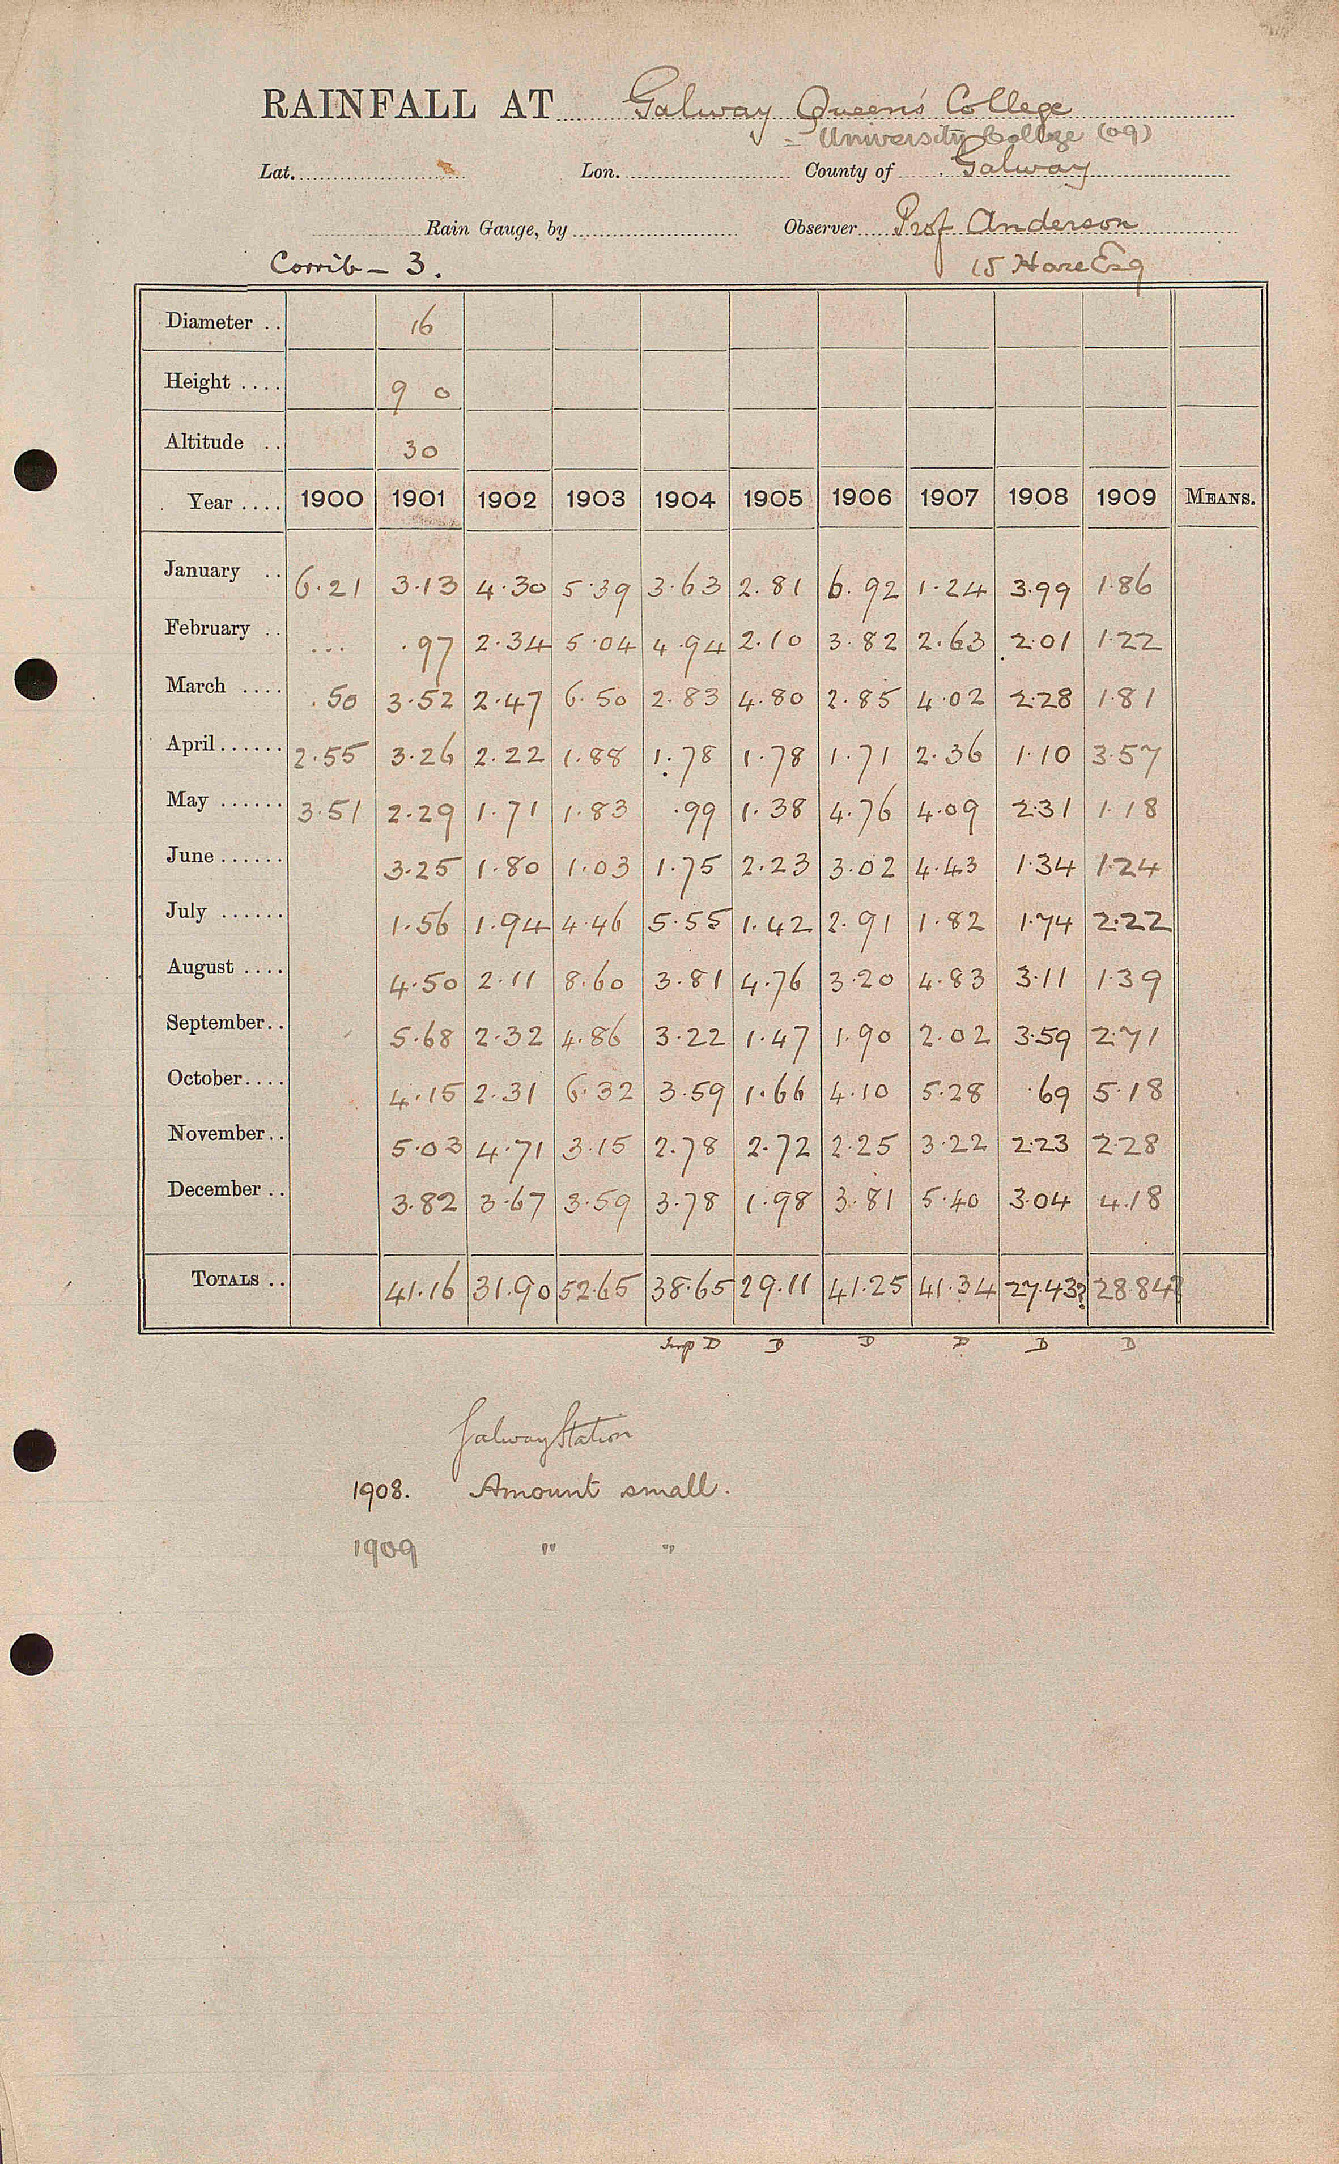 RAINFALL AT Galway Queen's College
= University College (09)
Lat. Lon. County of Galway
Rain Gauge, by Observer Prof Anderson
Corrib - 3. Hare Esq
Diameter .. 16
Height .... 9 0
Altitude .. 30
Year .... 1900 1901 1902 1903 1904 1905 1906 1907 1908 1909 MEANS.
January .. 6.21 3.13 4.30 5.39 3.63 2.81 6.92 1.24 3.99 1.86
February .. ... .97 2.34 5.04 4.94 2.10 3.82 2.63 2.01 1.22
March .... .50 3.52 2.47 6.50 2.83 4.80 2.85 4.02 2.28 1.81
April ...... 2.55 3.26 2.22 1.88 1.78 1.78 1.71 2.36 1.10 3.57
May ...... 3.51 2.29 1.71 1.83 .99 1.38 4.76 4.09 2.31 1.18
June ...... 3.25 1.80 1.03 1.75 2.23 3.02 4.43 1.34 1.24
July ...... 1.56 1.94 4.46 5.55 1.42 2.91 1.82 1.74 2.22
August .... 4.50 2.11 8.60 3.81 4.76 3.20 4.83 3.11 1.39
September .. 5.68 2.32 4.86 3.22 1.47 1.90 2.02 3.59 2.71
October .... 4.15 2.31 6.32 3.59 1.66 4.10 5.28 .69 5.18
November .. 5.03 4.71 3.15 2.78 2.72 2.25 3.22 2.23 2.28
December .. 3.82 3.67 3.59 3.78 1.98 3.81 5.40 3.04 4.18
TOTALS .. 41.16 31.90 52.65 38.65 29.11 41.25 41.34 27.43? 28.84?
D D D D D D
Galway Station
1908. Amount small.
1909 " "